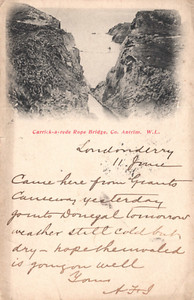 Carrick-a-rede Rope Bridge, Co. Antrim. W.L.
Londonderry
11. June
Came here from Giants
Causeway yesterday
to Donegal tomorrow
weather still cold but
dry – hope the
is going on well
Yours